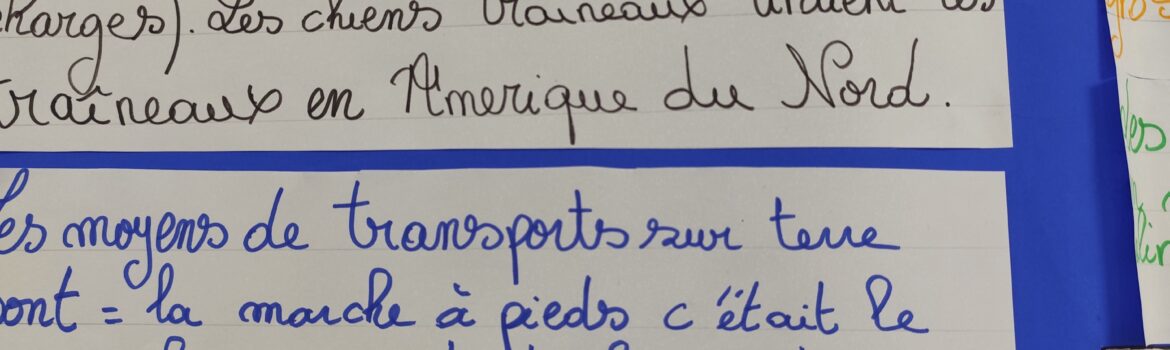 charges). Les chiens traineaux
traîneaux en Amerique du Nord.
Les moyens de transports sur terre
sont = la marche à pieds c'était le
des